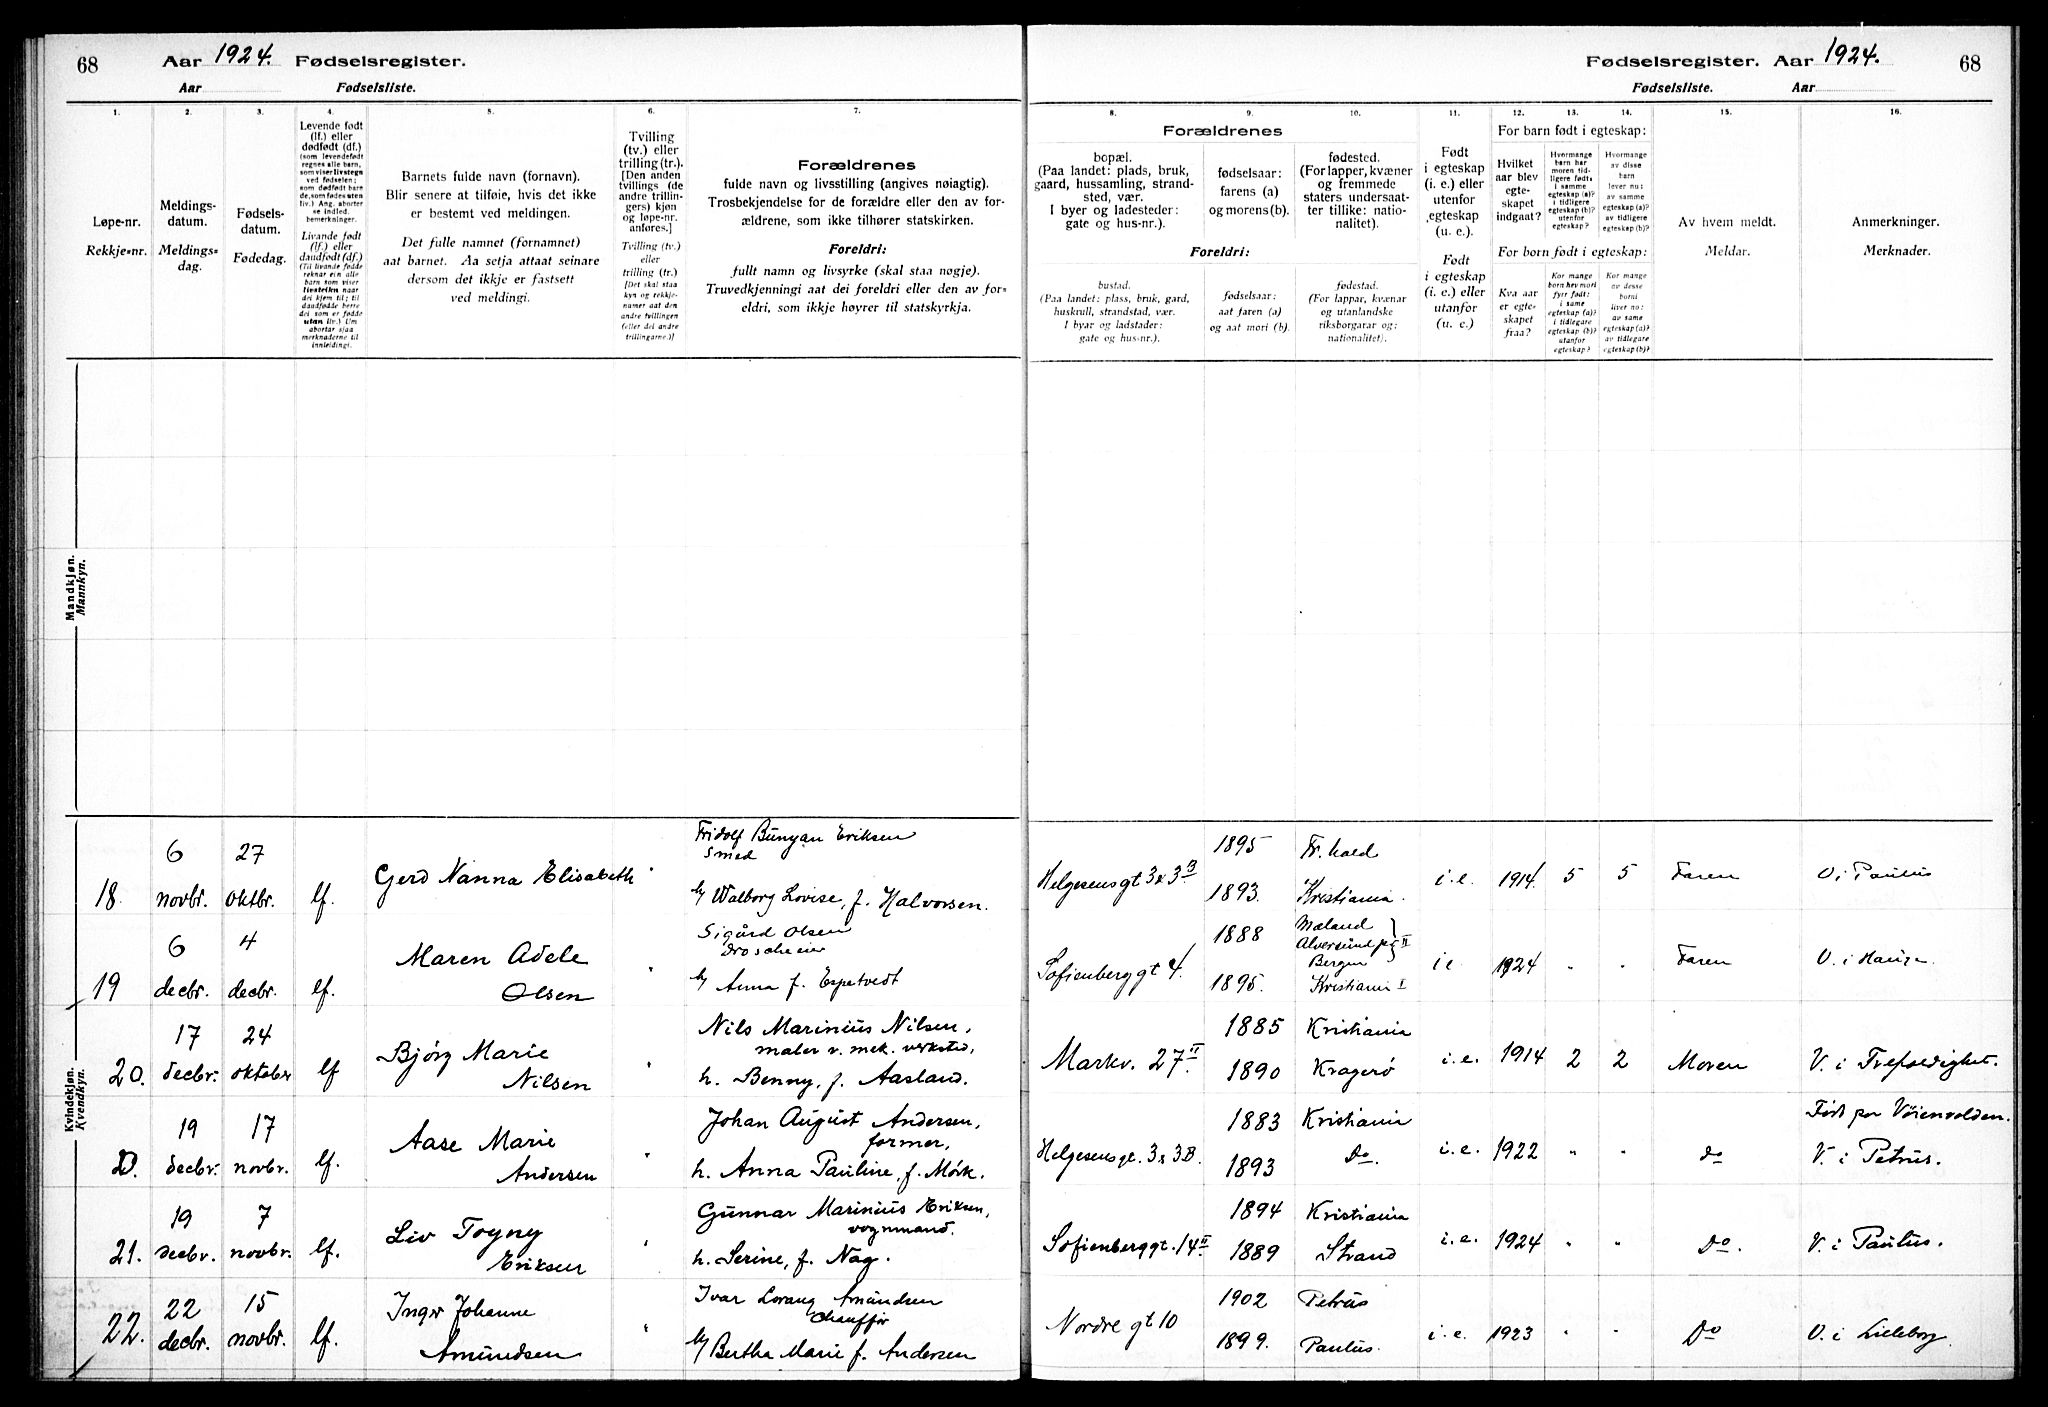 68
Aar 1924. Fødselsregister.
Aar Fødselsliste.
Fødselsregister. Aar 1924. 68
Fødselsliste. Aar
1. 2. 3. 4. 5. 6. 7.
Løpe-nr.
Rekkje-nr.
Meldings-
datum.
Meldings-
dag.
Fødsels-
datum.
Fødedag.
Levende født
(lf.) eller
dødfødt (df.)
(som levendefødt
regnes alle barn,
som viser livstegn
ved fødselen;
som dødfødt barn
de, som fødes uten
liv.) Ang. aborter
se indled.
bemerkninger.
Livande født
(lf.) eller
daudfødt (df.)
(Til livande fødde
reknar ein alle
barn som viser
livsteikn naar
dei kjem til; til
daudfødde berre
dei som er fødde
utan liv.) Um
abortar sjaa
merknaderne til
innleidingi.
Barnets fulde navn (fornavn).
Blir senere at tilføie, hvis det ikke
er bestemt ved meldingen.
Det fulle namnet (fornamnet)
aat barnet. Aa setja attaat seinare
dersom det ikkje er fastsett
ved meldingi.
Tvilling
(tv.) eller
trilling (tr.).
[Den anden
tvillings (de
andre trillin-
gers) kjøn
og løpe-nr.
anføres.]
Tvilling (tv.)
eller
trilling (tr.)
[Det skal staa
kyn og rekkje-
numer aat den
andre tvillingen
(eller dei andre
trillingarne.)]
Forældrenes
fulde navn og livsstilling (angives nøiagtig).
Trosbekjendelse for de forældre eller den av for-
ældrene, som ikke tilhører statskirken.
Foreldri:
fullt namn og livsyrke (skal staa nøgje).
Truvedkjenningi aat dei foreldri eller den av for-
eldri, som ikkje høyrer til statskyrkja.
8. 9. 10. 11. 12. 13. 14. 15. 16.
Forældrenes
bopæl.
(Paa landet: plads, bruk,
gaard, hussamling, strand-
sted, vær.
I byer og ladesteder:
gate og hus-nr.).
fødselsaar:
farens (a)
og morens (b).
fødested.
(For lapper, kvæner
og fremmede
staters undersaat-
ter tillike: natio-
nalitet).
Foreldri:
bustad.
(Paa landet: plass, bruk, gard,
huskrull, strandstad, vær.
I byar og ladstader:
gate og hus-nr.).
fødselsaar:
aat faren (a)
og aat mori (b).
fødestad.
(For lappar, kvænar
og utanlandske
riksborgarar og:
nationalitet).
Født
i egteskap
(i. e.) eller
utenfor
egteskap
(u. e.).
Født
i egteskap
(i. e.) eller
utanfor
(u. e.)
For barn født i egteskap:
Hvilket
aar blev
egte-
skapet
indgaat?
Hvormange
barn har
moren tid-
ligere født,
i samme
egteskap (a)?
i tidligere
egteskap (b)?
utenfor
egteskap?
Hvormange
av disse
barn
lever nu:
av samme
egteskap (a)?
av tidligere
egteskap (b)?
For born født i egteskap:
Kva aar
er egte-
skapet
fraa?
Kor mange
born hev mori
fyrr født:
i same
egteskap (a)?
i tidlegare
egteskap (b)?
utanfor
egteskap?
Kor mange
av desse
borni
liver no:
av same
egteskap (a)?
av tidlegare
egteskap (b)?
Av hvem meldt.
Meldar.
Anmerkninger.
Merknader.
Mandkjøn.
Mannkyn.
Kvindekjøn.
Kvendkyn.
18. 6 novbr. 27 oktbr. lf. Gerd Nanna Elisabeth
Fridolf Bunyan Eriksen
Smed
h/ Walborg Lovise, f. Halvorsen.
Helgesensgt 3 & 3B 1895 Fr.hald
1893. Kristiania. i. e. 1914. 5 5 Faren V. i Paulus
19 6 decbr. 4 decbr. lf. Maren Adele
Olsen
Sigurd Olsen
Droscheeier
h/ Anna f. Espetvedt
Sofienberggt 4. 1888 Mæland
Alversund pg II
Bergen
1895. Kristiania I i e 1924 " " Faren V. i Hauge
20. 17 decbr. 24 oktober lf Bjørg Marie
Nilsen
Nils Marinius Nilsen,
maler v. mek. verksted,
h. Benny, f. Aasland.
Markv. 27 II. 1885 Kristiania
1890 Kragerø i. e. 1914 2 2 Moren V. i Trefoldighet.
20. 19 decbr. 17 novbr. lf. Aase Marie
Andersen
Johan August Andersen,
former,
h. Anna Pauline, f. Mørk.
Helgesensgt. 3 & 3B. 1883 Kristiania
1893 Do. i. e. 1922 " " do Født paa Vøienvolden.
V. i Petrus.
21. 19 decbr. 7 novbr. lf. Liv Togny
Eriksen
Gunnar Marinius Eriksen,
vognmand.
h. Serine, f. Nag.
Sofienberggt. 14 II 1894 Kristiania
1889 Strand i. e. 1924 " " Do. V. i Paulus.
22. 22 decbr. 15 novbr. lf. Inger Johanne
Amundsen
Ivar Lorang Amundsen
Chauffør
h/ Bertha Marie f. Andersen
Nordre gt 10 1902 Petrus
1899. Paulus. i. e. 1923 " " Do V. i Lilleborg.